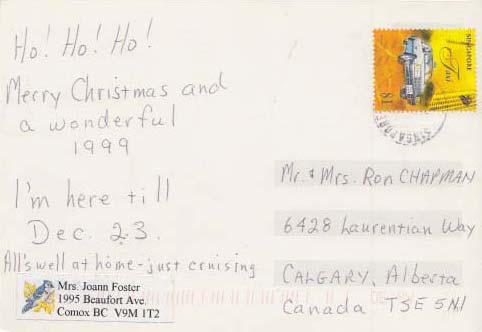 Ho! Ho! Ho!
Merry Christmas and
a wonderful
1999
I'm here till
Dec. 23.
All's well at home - just cruising
Mrs. Joann Foster
1995 Beaufort Ave.
Comox BC V9M 1T2
SINGAPORE
Taxi
$1
SINGAPORE
Mr. & Mrs. Ron CHAPMAN
6428 Laurentian Way
CALGARY, Alberta
Canada T3E 5N1